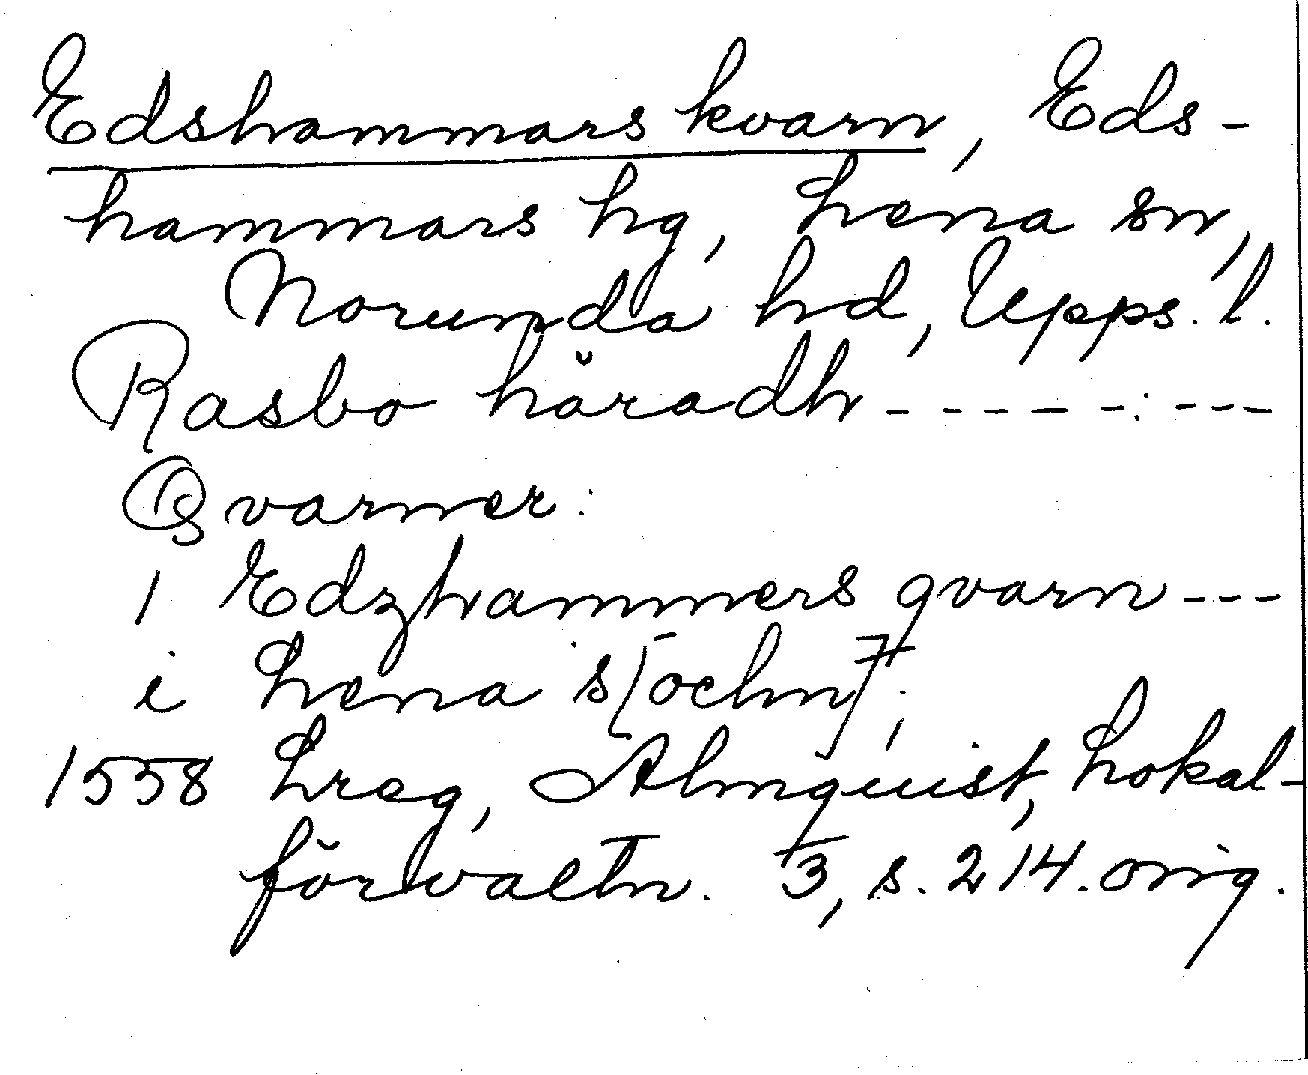 Edshammars kvarn, Eds-
hammars hg, Lena sn,
Norunda hd, Upps. l.
Rasbo häradh - - - - - : - - -
Qvarner:
1 Edzhammers qvarn - - -
i Lena s[ochn],
1558 Lreg, Almquist, Lokal-
förvaltn. 3, s. 214. orig.